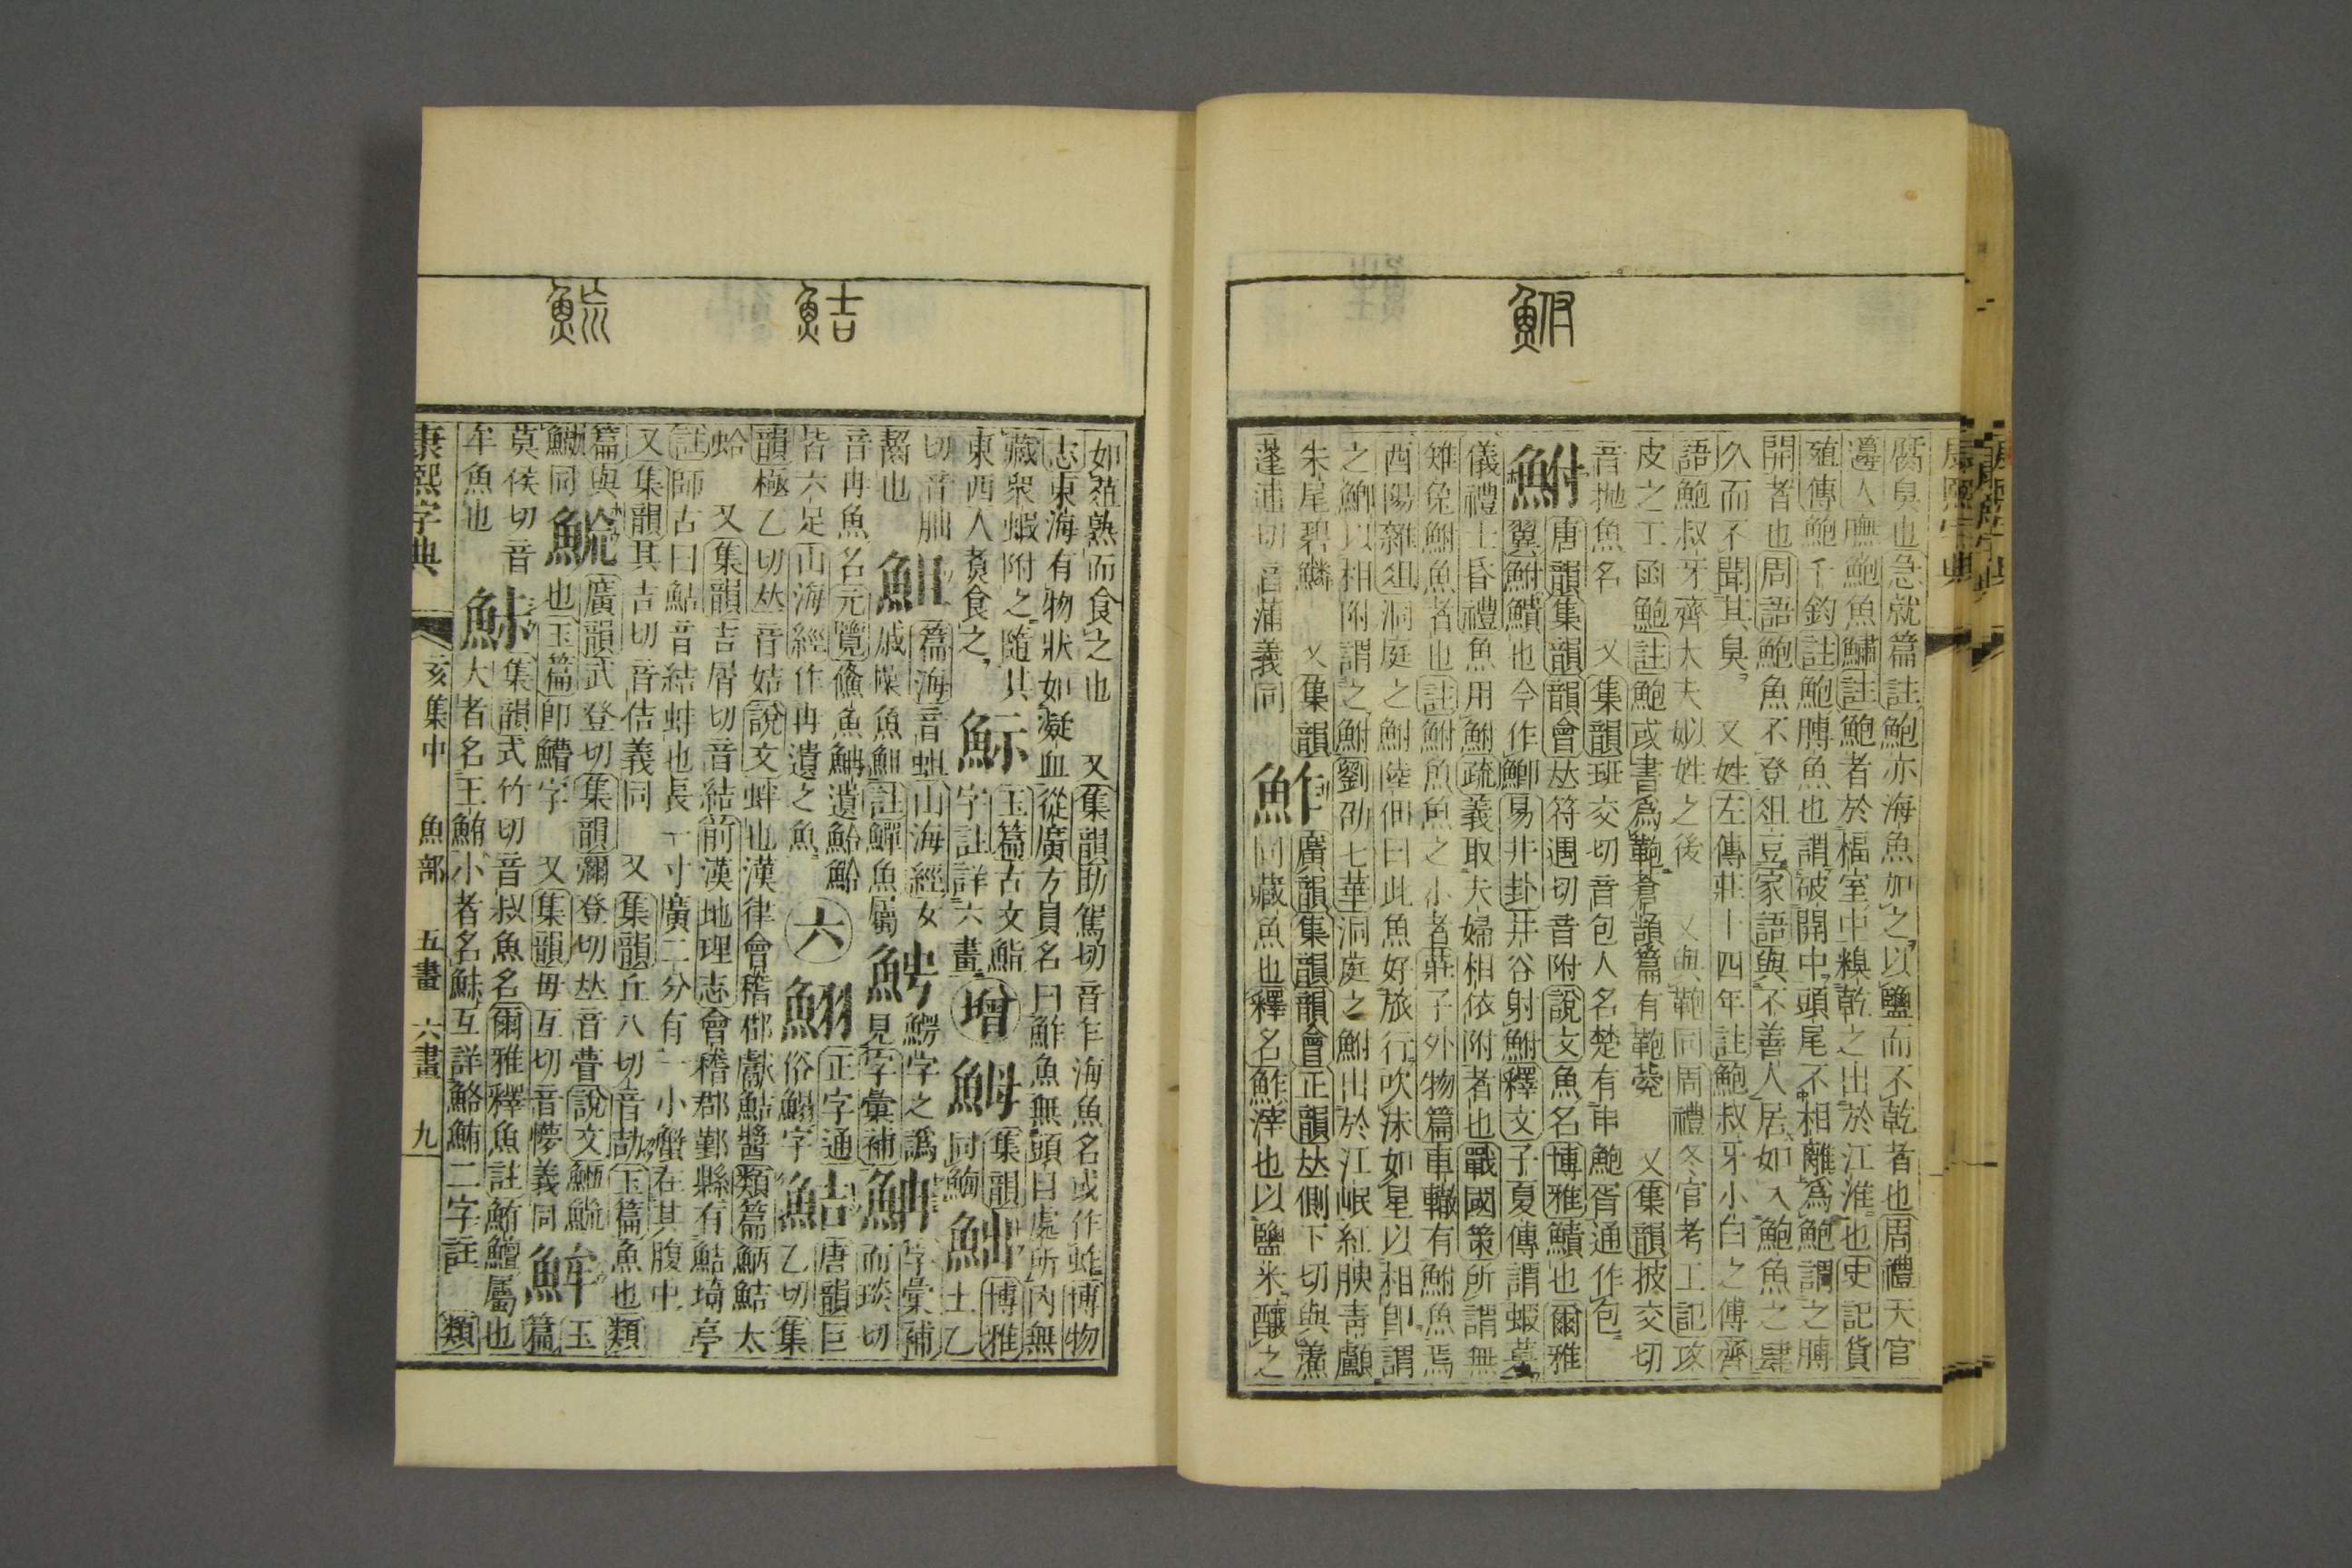 鮒
腐臭也急就篇註鮑亦海魚加之以鹽而不乾者也周禮天官
籩人膴鮑魚鱐註鮑者於楅室中糗乾之出於江淮也史記貨
殖傳鮑千鈞註鮑膊魚也謂破開中頭尾不相離爲鮑謂之膊
開者也周語鮑魚不登俎豆家語與不善人居如入鮑魚之肆
久而不聞其臭 又姓左傳莊十四年註鮑叔牙小白之傅齊
語鮑叔牙齊大夫姒姓之後 又與鞄同周禮冬官考工記攻
皮之工函鮑註鮑或書爲鞄蒼頡篇有鞄㼱 又集韻披交切
音抛魚名 又集韻班交切音包人名楚有申鮑胥通作包
鮒 唐韻集韻韻會𠀤符遇切音附說文魚名博雅鰿也爾雅
翼鮒鰿也今作鯽易井卦井谷射鮒釋文子夏傳謂蝦蟇
儀禮士昏禮魚用鮒疏義取夫婦相依附者也戰國策所謂無
雉兔鮒魚者也註鮒魚魚之小者莊子外物篇車轍有鮒魚焉
酉陽雜俎洞庭之鮒陸佃曰此魚好旅行吹沫如星以相卽謂
之鯽以相附謂之鮒劉劭七華洞庭之鮒出於江岷紅腴靑顱
朱尾碧鱗 又集韻
鮓 廣韻集韻韻會正韻𠀤側下切與鮺
蓬逋切音蒲義同
同藏魚也釋名鮓滓也以鹽米釀之
鮚
䱕
如葅熟而食之也 又集韻助駕切音乍海魚名或作䖳博物
志東海有物狀如凝血從廣方員名曰鮓魚無頭目處所內無
藏衆蝦附之隨其
東西人煑食之
䰻 玉篇古文鮨
字註詳六畫
增
䱋 集韻
同䱂
䱁 博雅
土乙
切音貀
䱉 篇海音蛆山海經女
鰐字之譌
字彙補
䰾也
音冉魚名元覽䱤魚䱃遺鮯鮯
皆六足山海經作冉遺之魚
六
正字通
俗鰯字
鮚 唐韻巨
乙切集
韻極乙切𠀤音姞說文蚌也漢律會稽郡獻鮚醬類篇䱇鮚太
蛤 又集韻吉屑切音結前漢地理志會稽郡鄞縣有鮚埼亭
註師古曰鮚音結蚌也長一寸廣二分有一小蟹在其腹中
又集韻其吉切音佶義同 又集韻丘八切音劼玉篇魚也類
篇與
鯍 廣韻武登切集韻彌登切𠀤音瞢說文
也玉篇卽鱛字 又集韻毋亙切音懜義同
䱕同
莫侯切音
牟魚也
集韻式竹切音叔魚名爾雅釋魚註鮪鱣屬也
大者名王鮪小者名鮛互詳鮥鮪二字註 類
康熙字典
亥集中 魚部 五畫 六畫 九